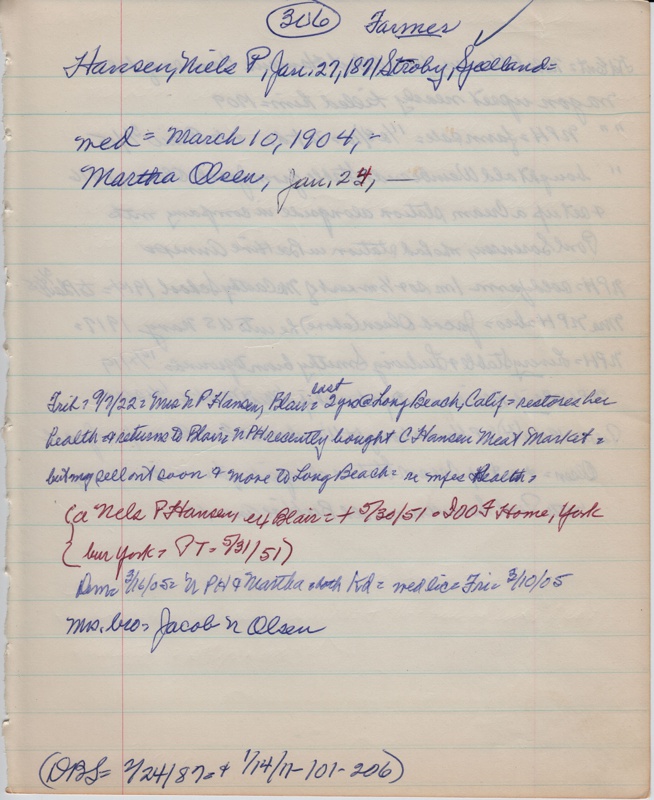 306 Farmer
Hansen, Niels P, Jan. 27, 1871 Stroby, Sjelland=
wed = March 10, 1904, -
Martha Olsen, Jan. 24, —
last
Trib = 9/7/22 = Mrs N P Hansen, Blair = 2 yrs @ Long Beach, Calif = restores her
health & returns to Blair = N PH recently bought C Hansen Meat Market =
but may sell out soon & move to Long Beach = re mfes Health =
(a Nels P Hansen, ex Blair = + 5/30/51 = IOOF Home, York
( bur York = PT = 5/31/51)
Dem = 3/16/05 = N PH & Martha = both Kd = wed lic = Fri = 3/10/05
Mrs. bro = Jacob N Olsen
(DBS = 2/24/87 = & 1/14/11 - 101 - 206)